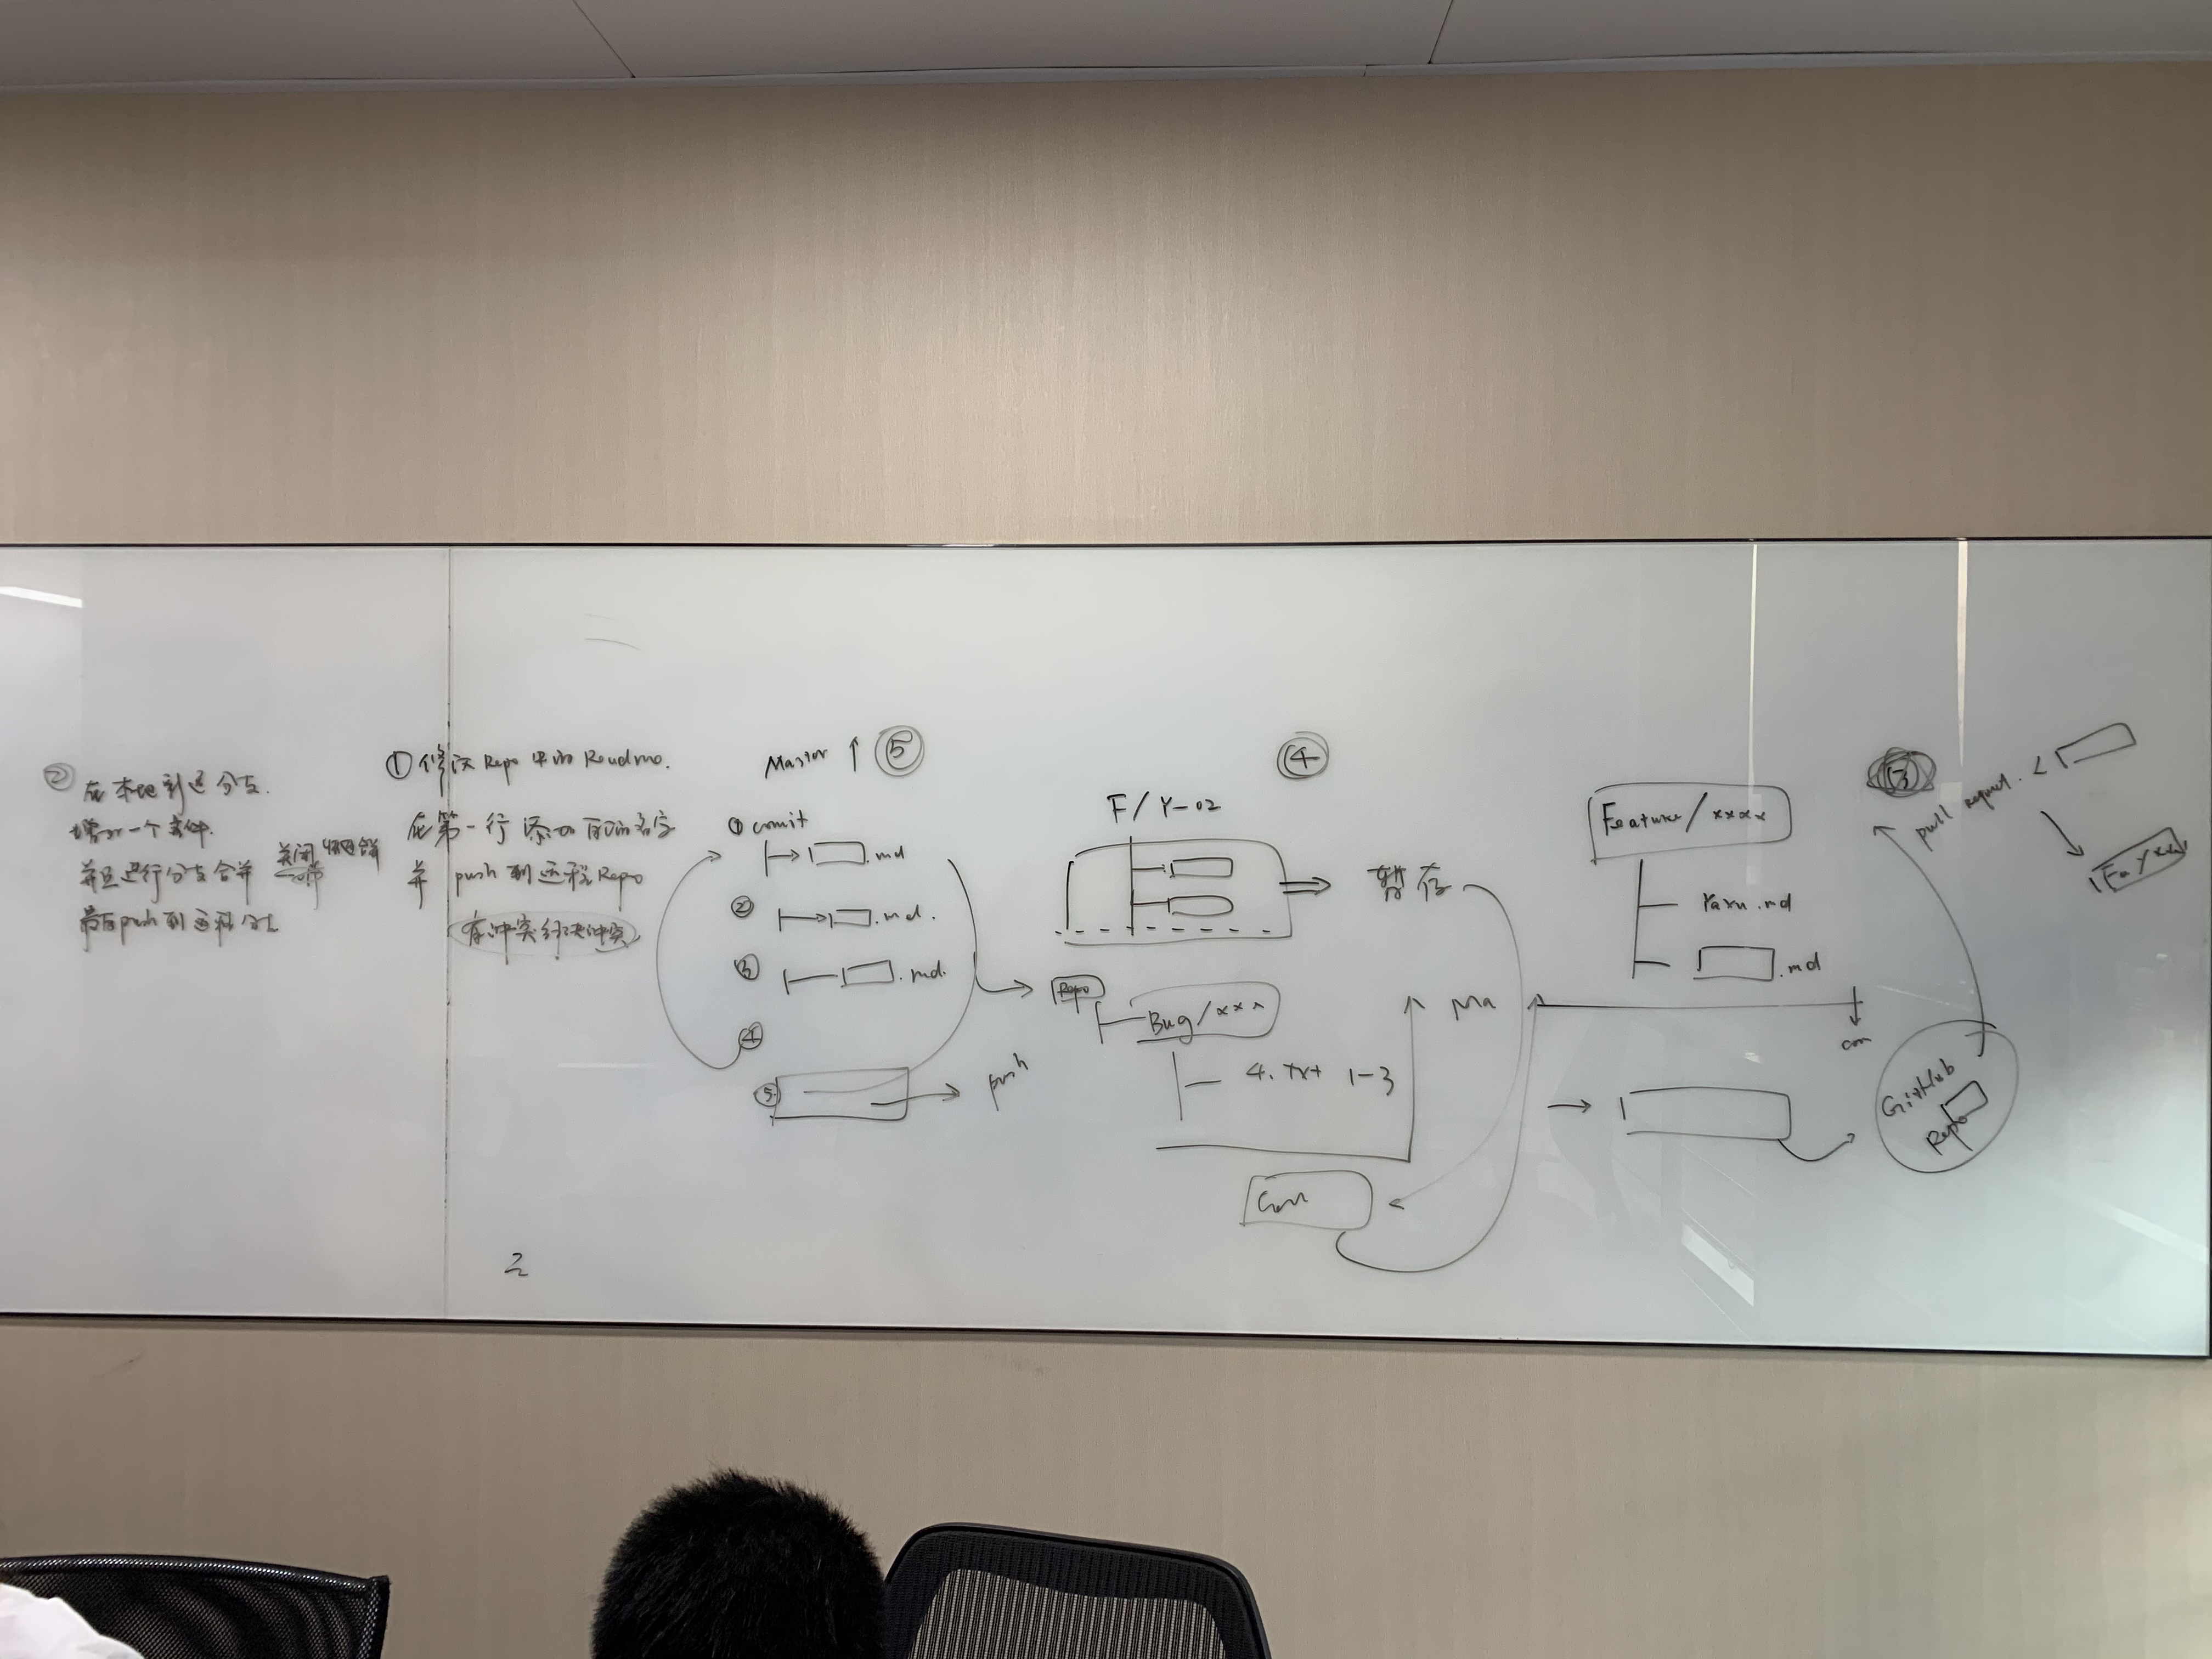 ② 在本地创建分支.
增加一个文件.
并且进行分支合并 关闭快进合并
最后push到远程分支
① 修改 Repo 中的 Readme.
在第一行 添加 自己的名字
并 push 到远程Repo
有冲突解决冲突
Master ↑ ⑤
① comit
.md
② .md.
③ .md.
④
⑤ push
④
F/Y-02
暂存
Repo
Bug/xxx
4. txt 1-3
Ma
Com
Feature/xxxx
Yaxu.md
.md
com
③
pull request.
GitHub
Repo
二